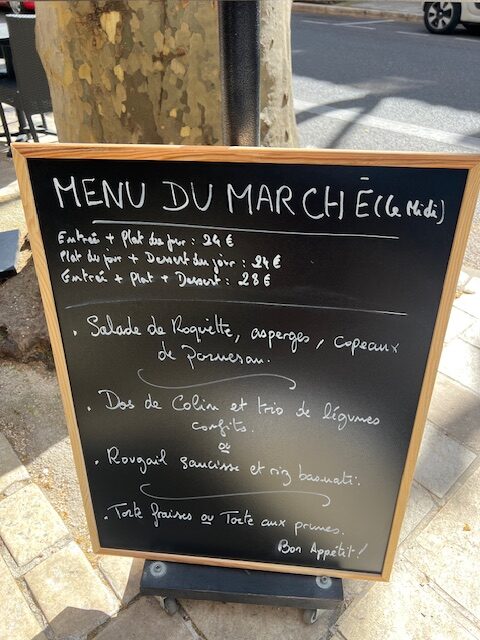 MENU DU MARCHÉ (le Midi)
Entrée + Plat du jour : 24 €
Plat du jour + Dessert du jour : 24 €
Entrée + Plat + Dessert : 28 €
• Salade de Roquette, asperges, copeaux
de parmesan.
• Dos de Colin et trio de légumes
confits.
ou
• Rougail saucisse et riz basmati.
• Tarte fraises ou Tarte aux prunes.
Bon Appétit !